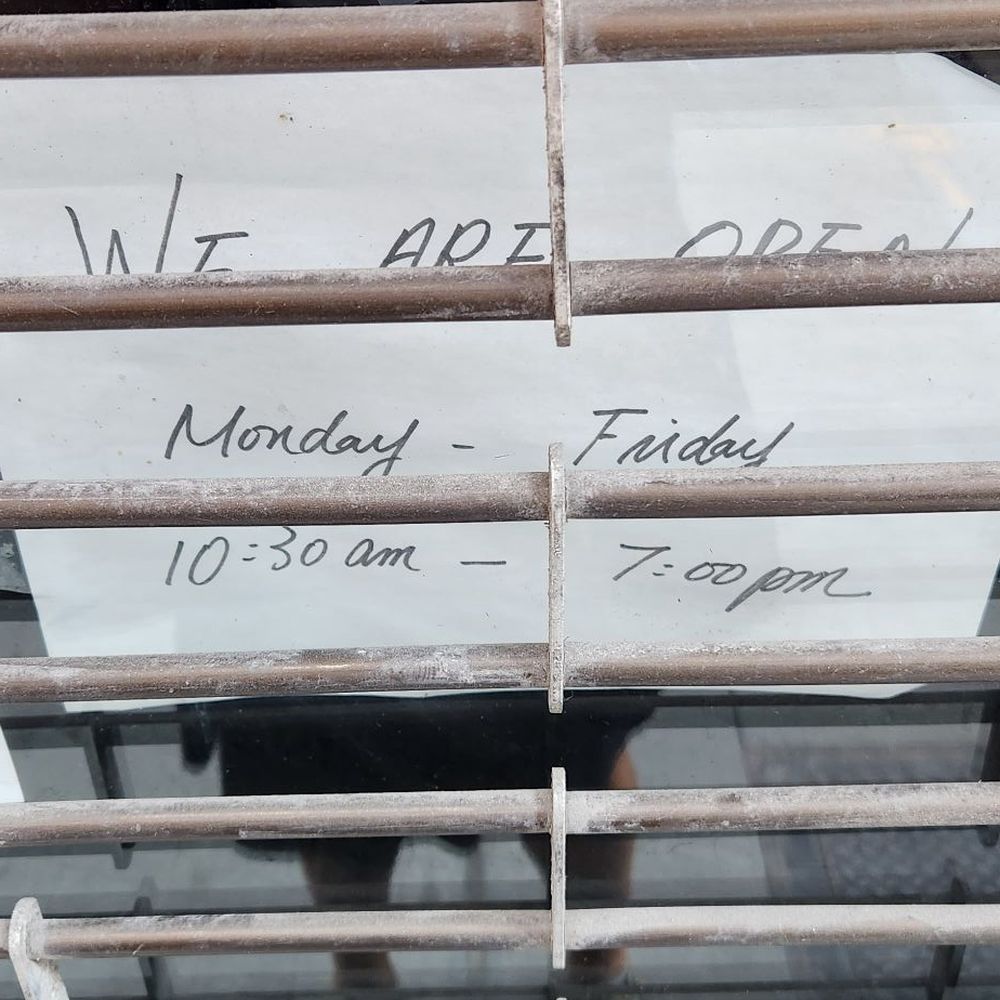 WE ARE OPEN
Monday - Friday
10:30 am - 7:00 pm